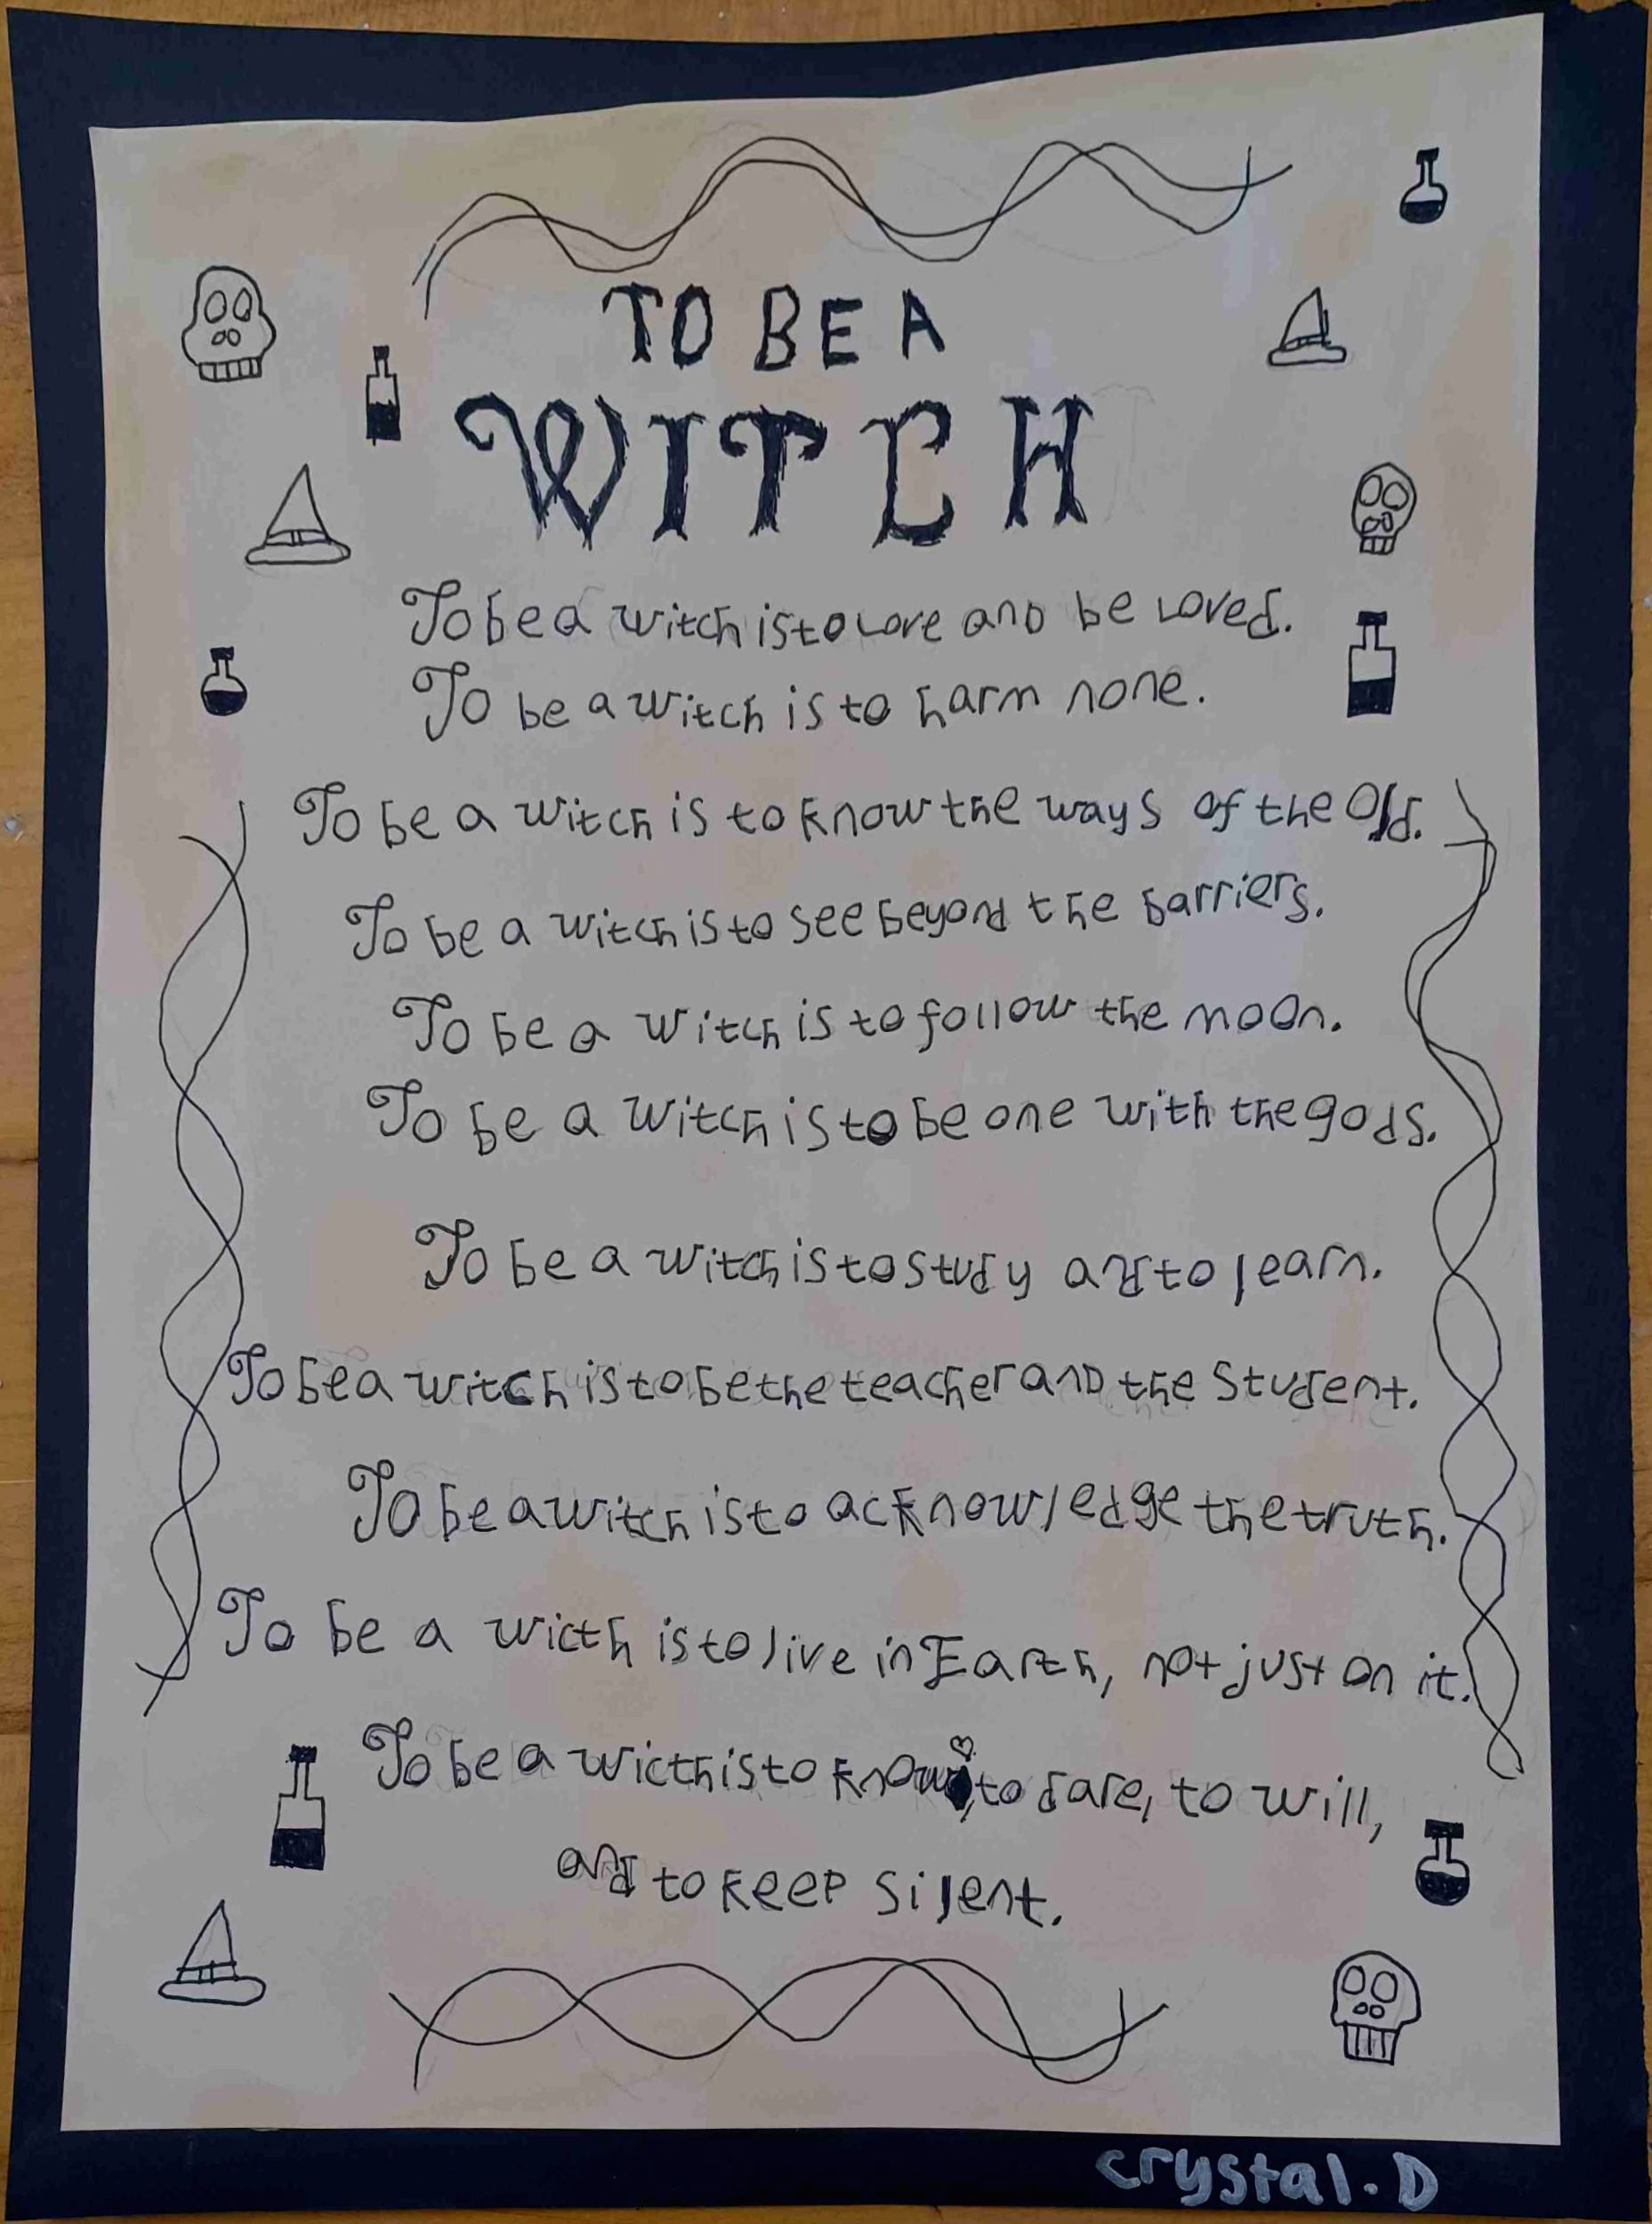 TO BE A
WITCH
To be a witch is to love and be loved.
To be a witch is to harm none.
To be a witch is to know the ways of the Old.
To be a witch is to see beyond the barriers.
To be a witch is to follow the moon.
To be a witch is to be one with the gods.
To be a witch is to study and to learn.
To be a witch is to be the teacher and the student.
To be a witch is to acknowledge the truth.
To be a wicth is to live in Earth, not just on it.
To be a wicth is to know, to dare, to will,
and to keep silent.
crystal.D